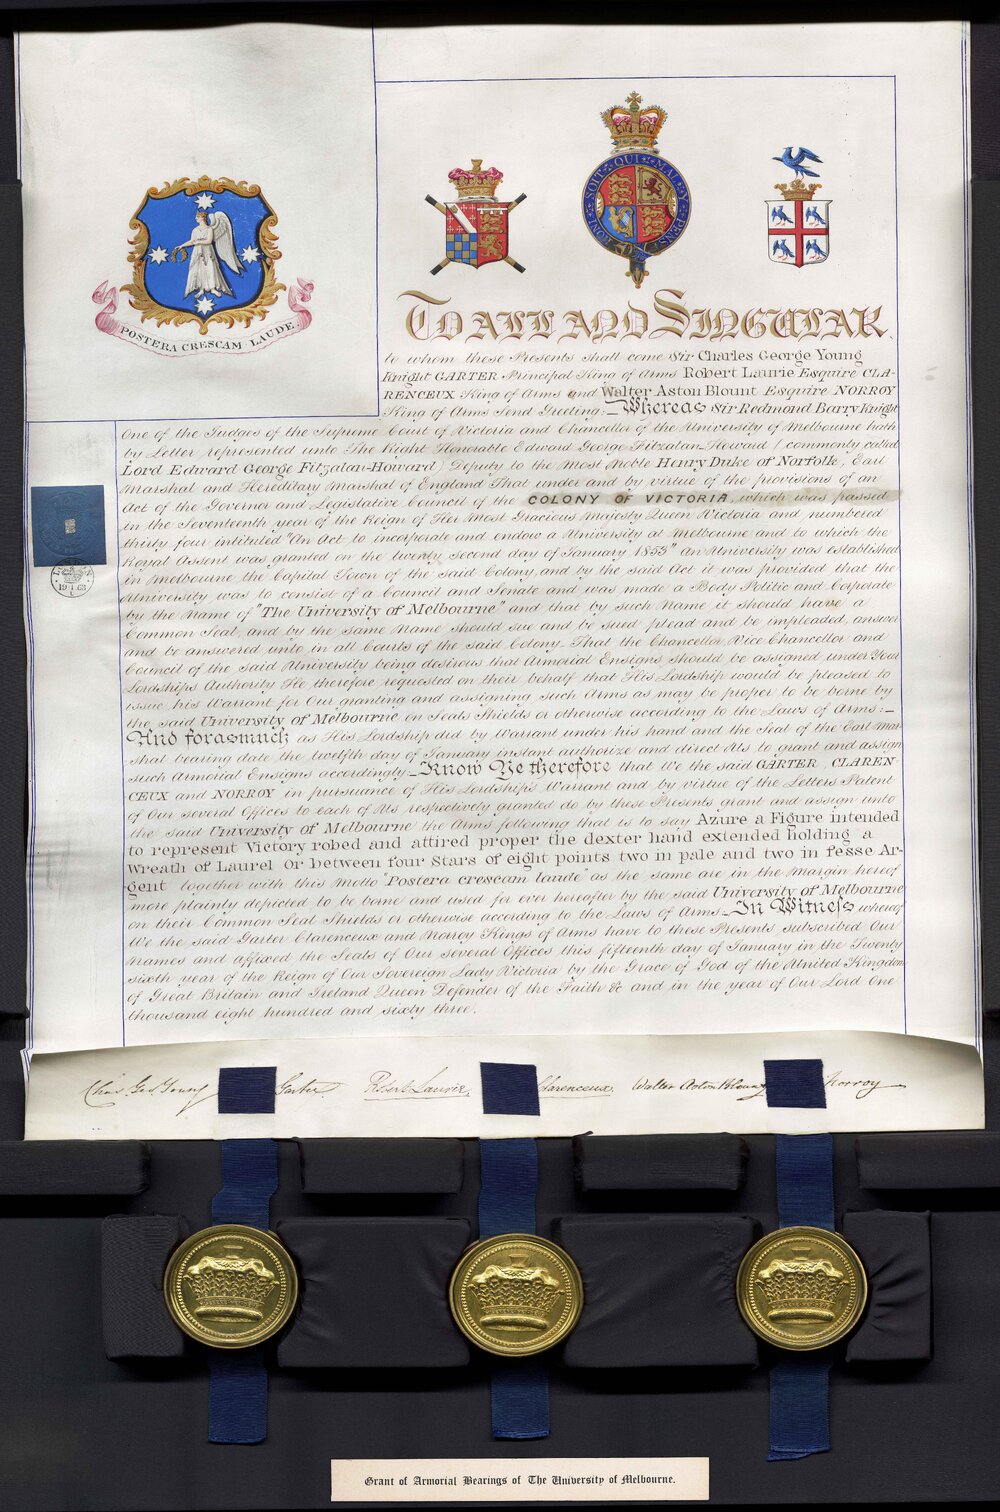 POSTERA CRESCAM LAUDE.
HONI SOIT QUI MAL Y PENSE
To All and Singular
to whom these Presents shall come Sir Charles George Young
Knight GARTER Principal King of Arms Robert Laurie Esquire CLA-
RENCEUX King of Arms and Walter Aston Blount Esquire NORROY
King of Arms Send Greeting:_ Whereas Sir Redmond Barry Knight
One of the Judges of the Supreme Court of Victoria and Chancellor of the University of Melbourne hath
by Letter represented unto The Right Honorable Edward George Fitzalan Howard (commonly called
Lord Edward George Fitzalan-Howard) Deputy to the Most Noble Henry Duke of Norfolk, Earl
Marshal and Hereditary Marshal of England That under and by virtue of the provisions of an
Act of the Governor and Legislative Council of the COLONY OF VICTORIA, which was passed
in the Seventeenth year of the Reign of Her Most Gracious Majesty Queen Victoria and numbered
thirty four intituled "An Act to incorporate and endow a University at Melbourne and to which the
Royal Assent was granted on the twenty second day of January 1853" an University was established
in Melbourne the Capital Town of the said Colony, and by the said Act it was provided that the
University was to consist of a Council and Senate and was made a Body Politic and Corporate
by the Name of "The University of Melbourne" and that by such Name it should have a
Common Seal, and by the same Name should sue and be sued plead and be impleaded, answer
and be answered unto in all Courts of the said Colony. That the Chancellor, Vice Chancellor and
Council of the said University being desirous that Armorial Ensigns should be assigned under Your
Lordship's Authority He therefore requested on their behalf that His Lordship would be pleased to
issue his Warrant for Our granting and assigning such Arms as may be proper to be borne by
the said University of Melbourne on Seals Shields or otherwise according to the Laws of Arms:_
And forasmuch as His Lordship did by Warrant under his hand and the Seal of the Earl Mar-
shal bearing date the twelfth day of January instant authorize and direct Us to grant and assign
such Armorial Ensigns accordingly_ Know Ye therefore that We the said GARTER CLAREN-
CEUX and NORROY in pursuance of His Lordship's Warrant and by virtue of the Letters Patent
of Our several Offices to each of Us respectively granted do by these Presents grant and assign unto
the said University of Melbourne the Arms following that is to say Azure a Figure intended
to represent Victory robed and attired proper the dexter hand extended holding a
Wreath of Laurel Or between four Stars of eight points two in pale and two in fesse Ar-
gent together with this Motto "Postera crescam laude" as the same are in the Margin hereof
more plainly depicted to be borne and used for ever hereafter by the said University of Melbourne
on their Common Seal Shields or otherwise according to the Laws of Arms_ In Witness whereof
We the said Garter Clarenceux and Norroy Kings of Arms have to these Presents subscribed Our
Names and affixed the Seals of Our several Offices this fifteenth day of January in the Twenty
sixth year of the Reign of Our Sovereign Lady Victoria by the Grace of God of the United Kingdom
of Great Britain and Ireland Queen Defender of the Faith &c and in the year of Our Lord One
thousand eight hundred and sixty three.
19.1.63
Chas Geo Young Garter Robert Laurie Clarenceux. Walter Aston Blount Norroy
Grant of Armorial Bearings of The University of Melbourne.